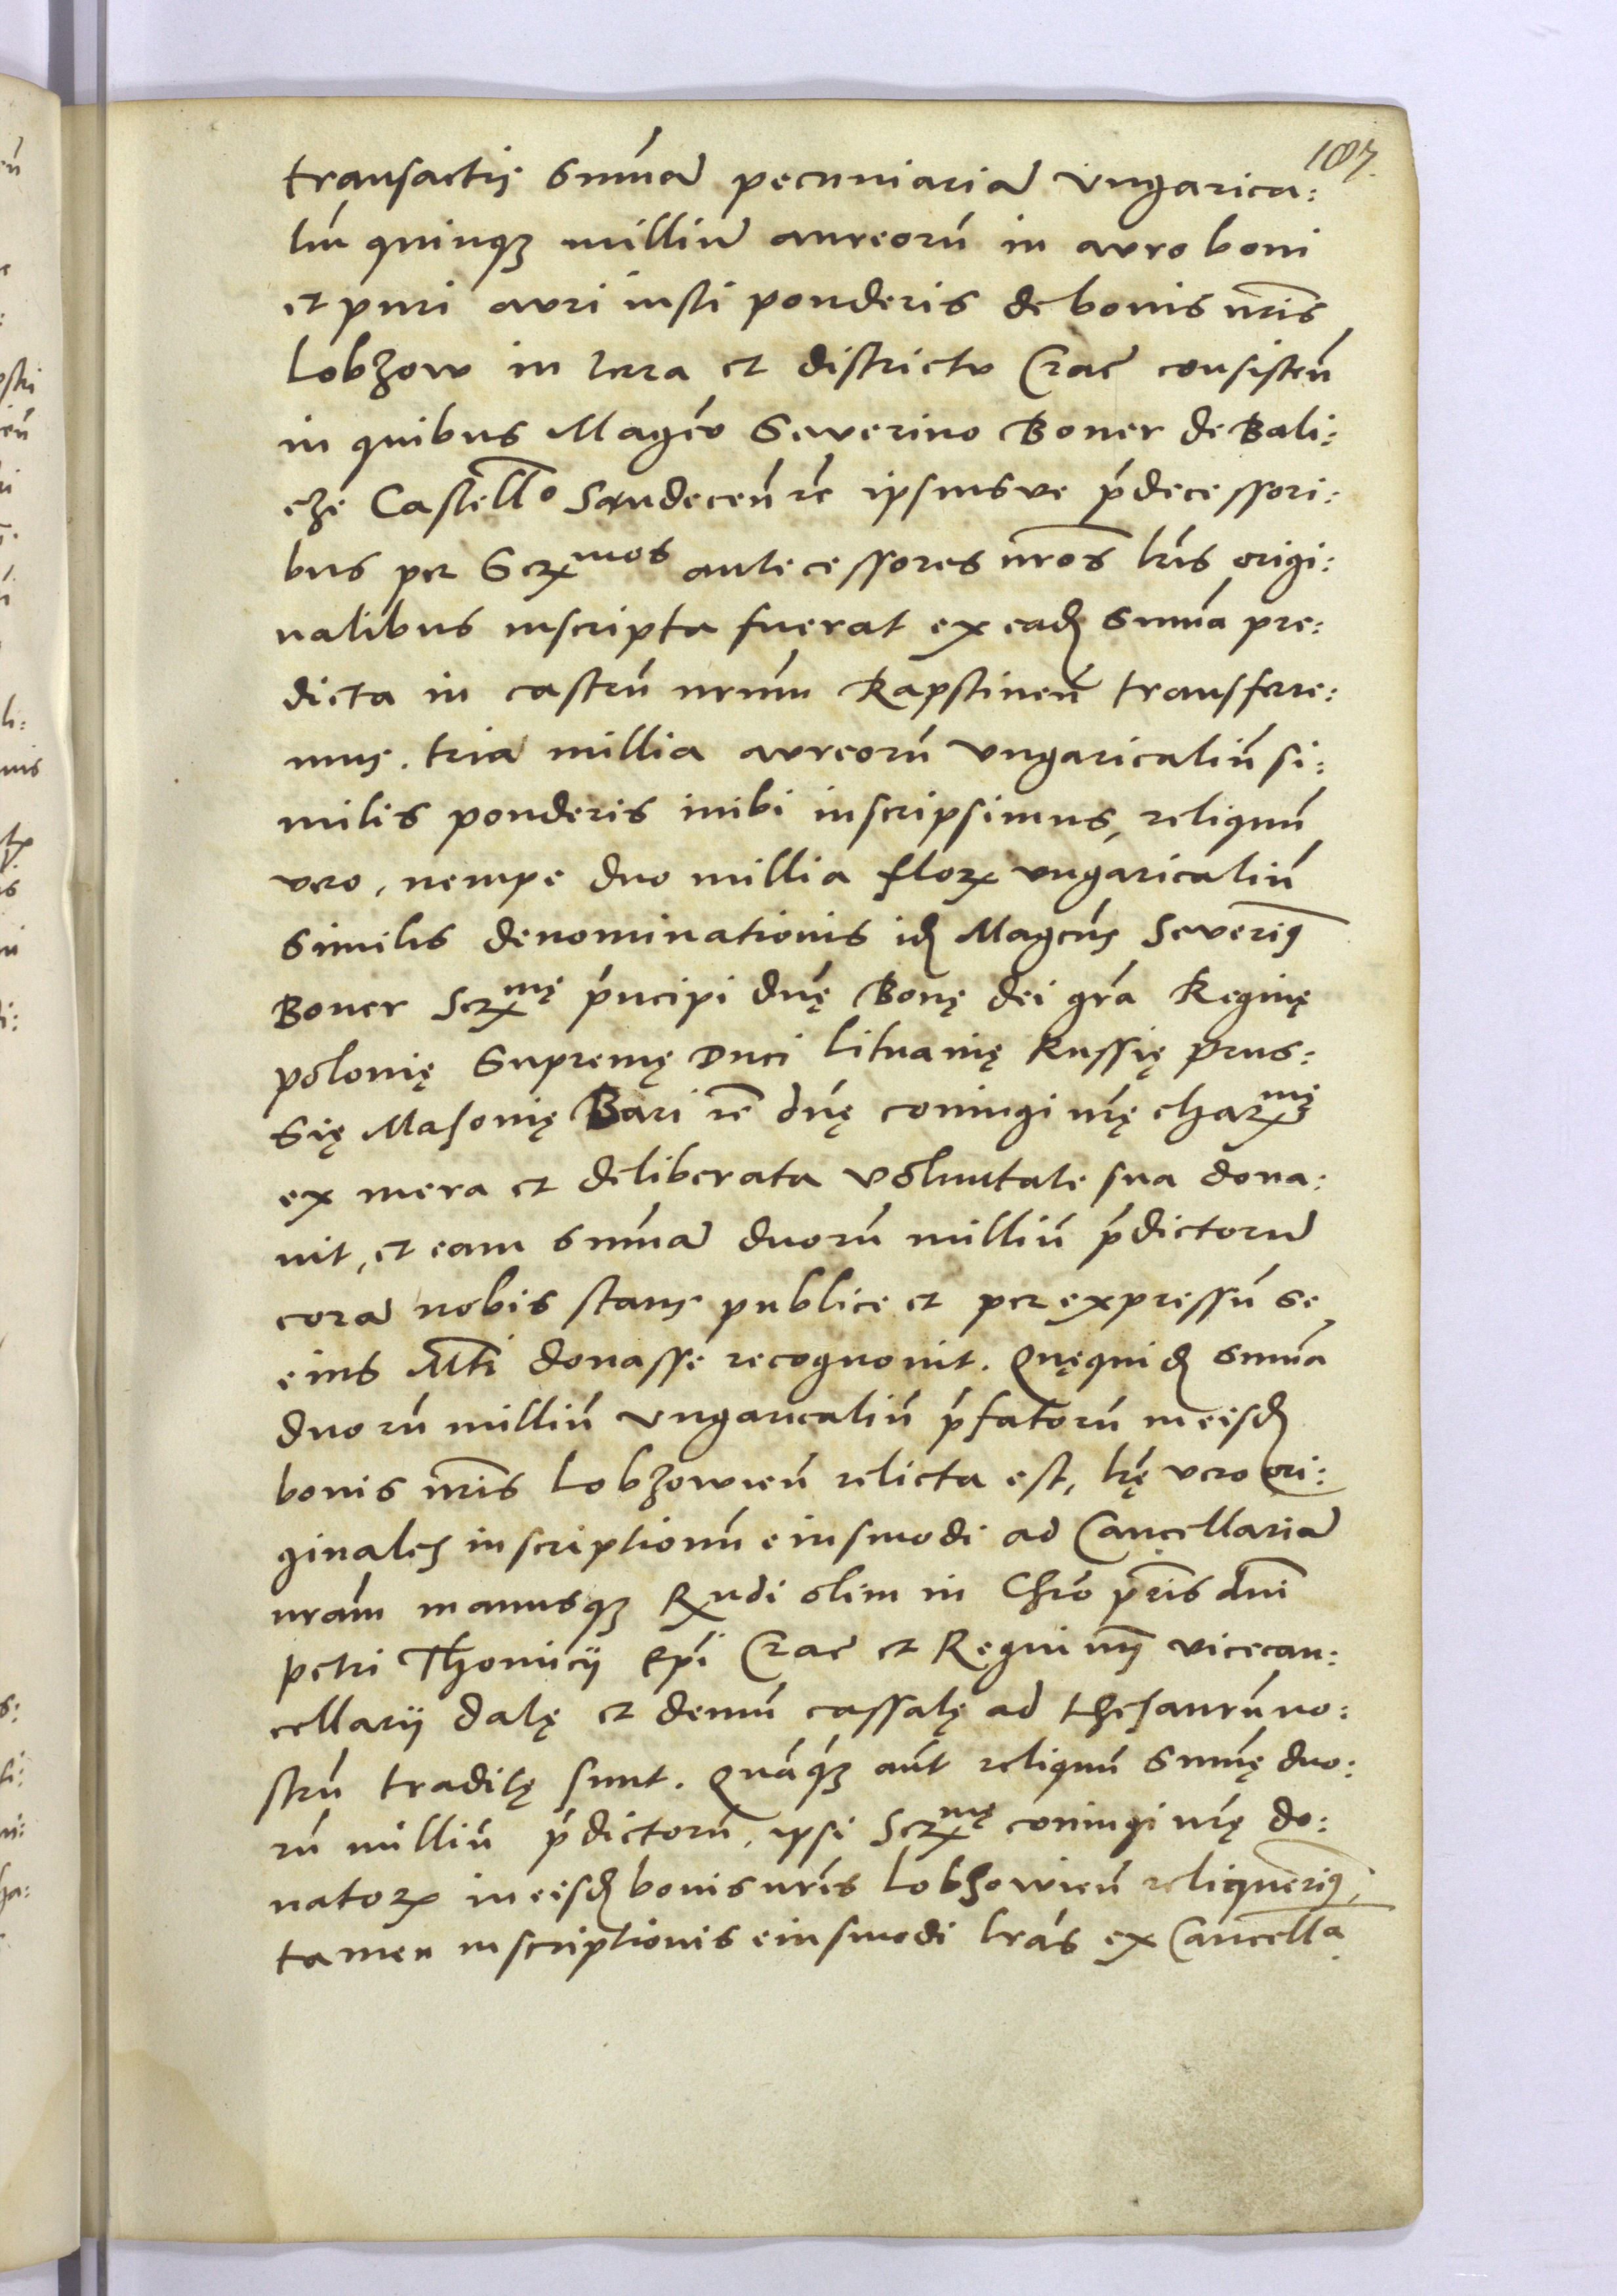 187.
transactis sum̄ā pecuniariā ungarica:
liū quinqȝ milliū aureorū in auro boni
et puri auri iusti ponderis de bonis nr̄is
Lobzow in terra et districtu Crac̄ consisten̄
in quibus Magc̄o Severino Boner de Bali:
cze Castell̄o Sandecen̄ etc̄ ipsiusve p̄decessori:
bus per Serꝫmos antecessores nr̄os lr̄is origi:
nalibus inscripta fuerat ex eadꝫ sum̄a pre:
dicta in castrū nrūm Rapstinen̄ transfere:
mus. tria millia aureorū ungaricaliū si:
milis ponderis inibi inscripsimus, reliquū
vero, nempe duo millia florꝫ ungaricaliū
similis denominationis idꝫ Magc̄us Severiꝰ
Boner Serꝫmę p̄ncipi dn̄ę Bonę dei gr̄a Reginę
polonię Supremę Duci Lituanię Russię prus:
się Masonię Bari etc̄ dn̄ę coniugi nr̄ę charꝫmę
ex mera et deliberata voluntate sua dona:
vit, et eam sum̄ā duorū milliū p̄dictorū
corā nobis stans publice et per expressū se
eius Mt̄i donasse recognovit. Quęquidꝫ sum̄a
duorū milliū ungaricaliū p̄fatorū in eisdꝫ
bonis nr̄is Lobzowien̄ relicta est, lr̄ę vero ori:
ginales inscriptionū eiusmodi ad Cancellariā
nrām manusqȝ Rꝫndi olim in Chr̄o pr̄is dn̄i
petri Thomicij Ep̄i Crac̄ et Regni nr̄i vicecan:
cellarij datę et demū cassatę ad thesaurū no:
strū traditę sunt. Quāqȝ aūt reliquū sum̄ę duo:
rū milliū p̄dictorū, ipsi Serꝫmę coniugi nr̄ę do:
natorꝫ in eisdꝫ bonis nr̄is Lobzowien̄ reliqueriꝰ,
tamen inscriptionis eiusmodi lr̄as ex Cancella